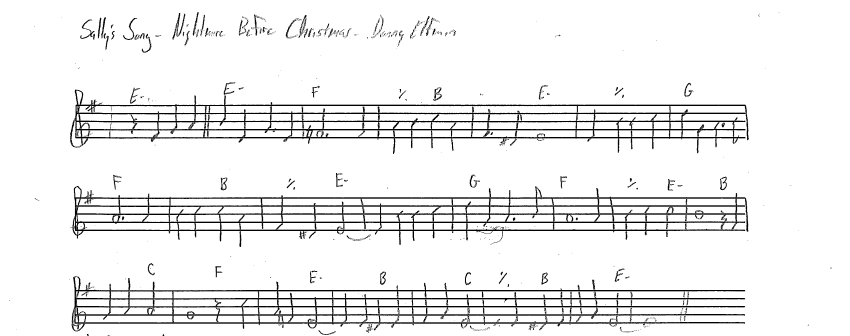 Sally's Song - Nightmare Before Christmas - Danny Elfman
E- E- F ٪ B E- ٪ G
F B ٪ E- G F ٪ E- B
C F E- B C ٪ B E-